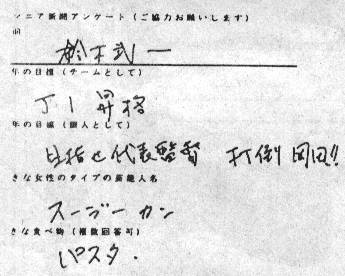 ジュニア新聞アンケート(ご協力お願いします)
前
鈴木武一
年の目標(チームとして)
J1昇格
年の目標(個人として)
目指せ代表監督 打倒岡田!!
きな女性のタイプの芸能人名
スージー カン
きな食べ物(複数回答可)
パスタ.